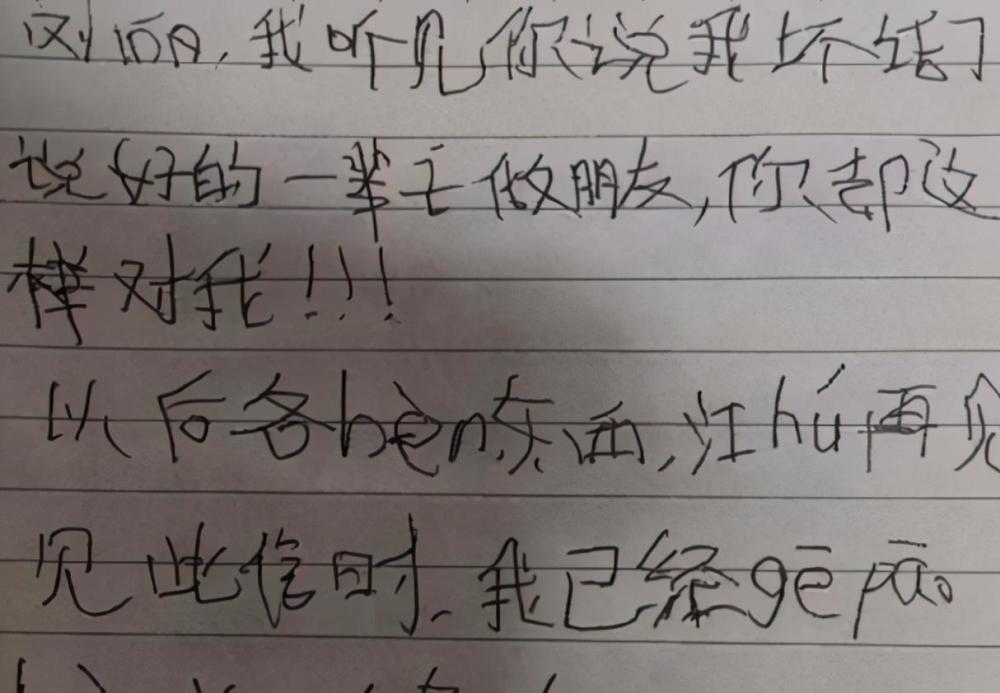 我听见你说我坏话了
说好的一辈子做朋友,你却这
样对我!!!
以后各hèn东西,江hú再见
见此信时.我已经gē pāo。